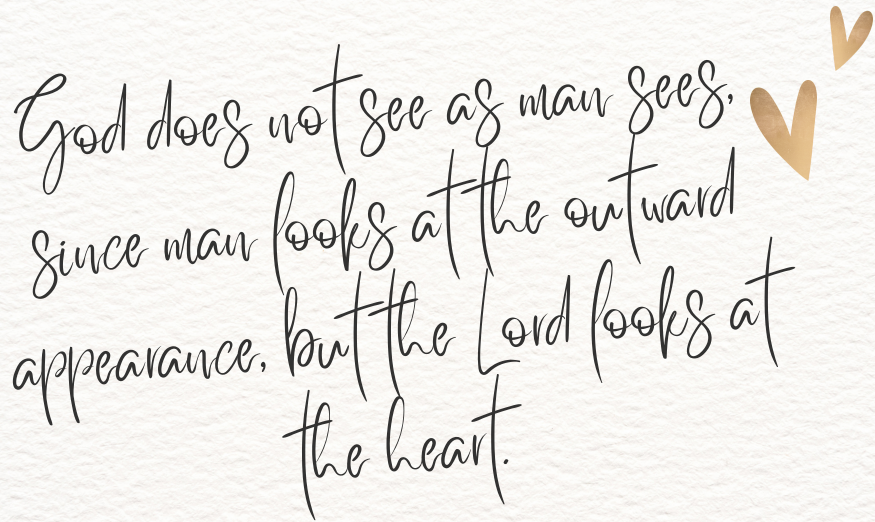 God does not see as man sees,
since man looks at the outward
appearance, but the Lord looks at
the heart.